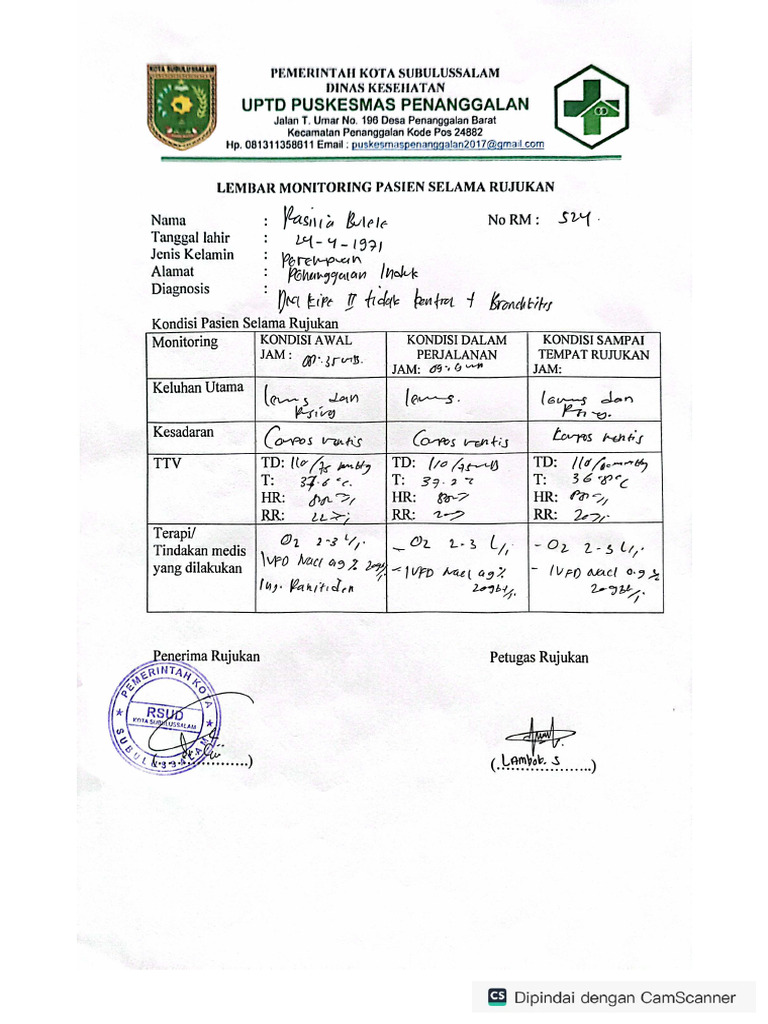 KOTA SUBULUSSALAM
PEMERINTAH KOTA SUBULUSSALAM
DINAS KESEHATAN
UPTD PUSKESMAS PENANGGALAN
Jalan T. Umar No. 196 Desa Penanggalan Barat
Kecamatan Penanggalan Kode Pos 24882
Hp. 081311358611 Email : puskesmaspenanggalan2017@gmail.com
LEMBAR MONITORING PASIEN SELAMA RUJUKAN
Nama : No RM : 524.
Tanggal lahir : 24-4-1971
Jenis Kelamin : Perempuan
Alamat : Penanggalan
Diagnosis : II tidak kontrol +
Kondisi Pasien Selama Rujukan
Monitoring KONDISI AWAL KONDISI DALAM KONDISI SAMPAI
JAM : PERJALANAN TEMPAT RUJUKAN
JAM: JAM:
Keluhan Utama lemas dan lemas. lemas dan
Kesadaran Compos mentis Compos mentis Compos mentis
TTV TD: 110/75 mmHg TD: 110/75 TD: 110/
T: 37.6°C. T: 37.2°C T: 36
HR: HR: HR:
RR: 22 RR: 20 RR: 20
Terapi/ O2 2-3 L/i - O2 2-3 L/i - O2 2-3 L/i
Tindakan medis IVFD Nacl 0.9% - IVFD Nacl 0.9% - IVFD Nacl 0.9%
yang dilakukan Inj. Ranitidin 20gtt/i. 20gtt/i
Penerima Rujukan Petugas Rujukan
PEMERINTAH KOTA
RSUD
KOTA SUBULUSSALAM
SUBULUSSALAM
(..................) (Lambok. S)
CS Dipindai dengan CamScanner